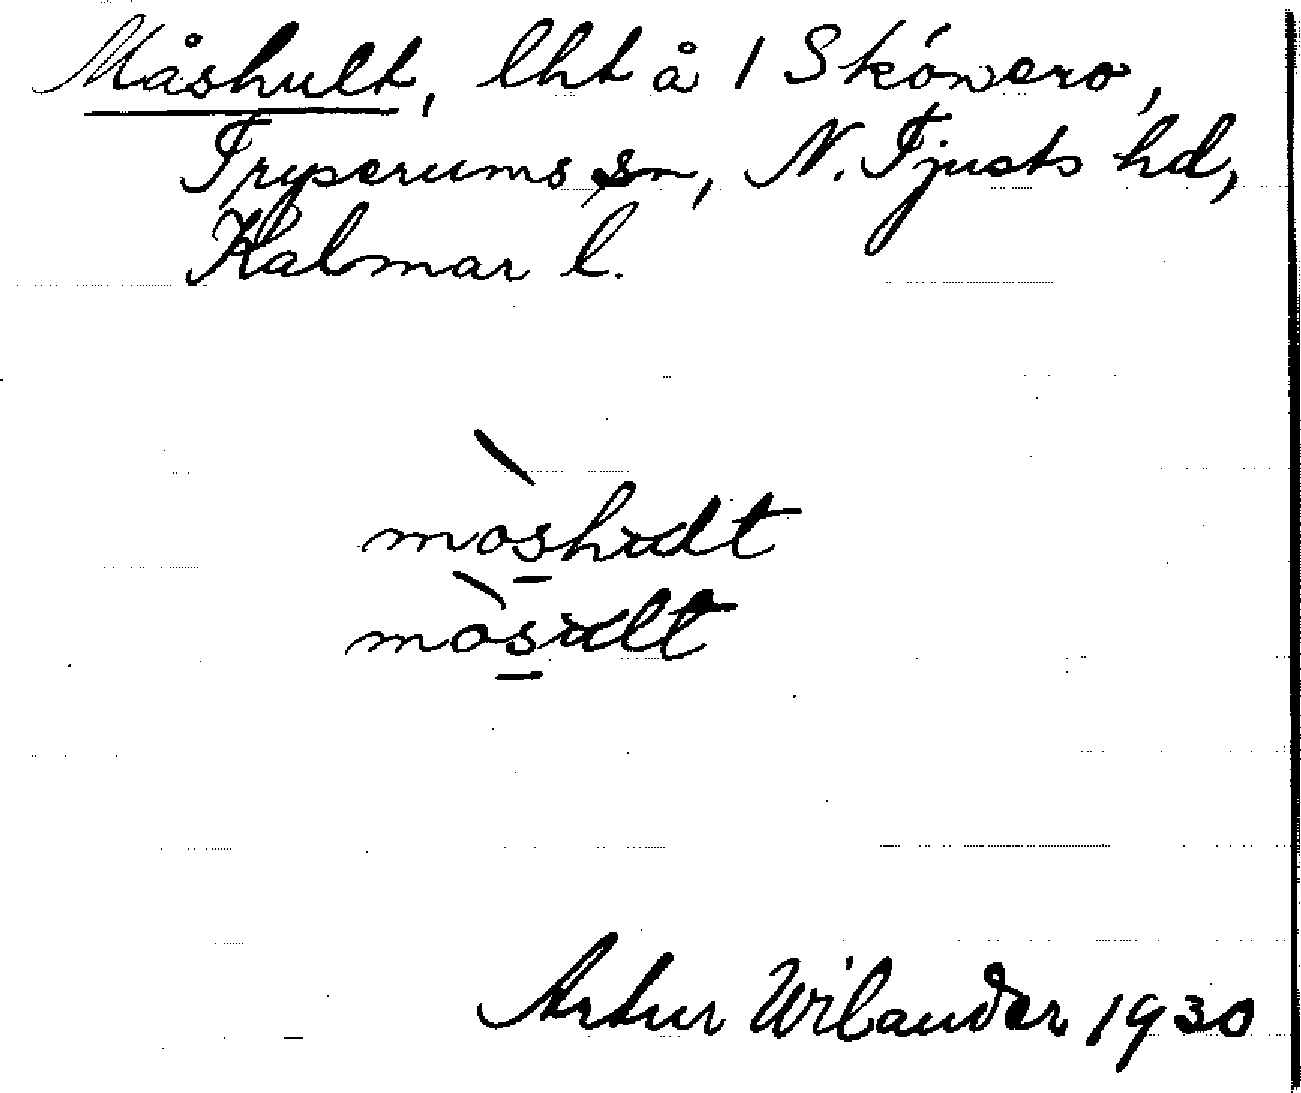 Måshult, lht å 1 Skónero,
Tryserums sn, N. Tjusts hd,
Kalmar l.
mòshult
mòsult
Artur Wilander 1930